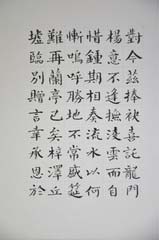 對今茲捧袂喜託龍門
楊意不逢撫淩雲而自
惜鍾期相奏流水以何
慚嗚呼勝地不常盛筵
難再蘭亭已矣梓澤丘
墟臨別贈言幸承恩於